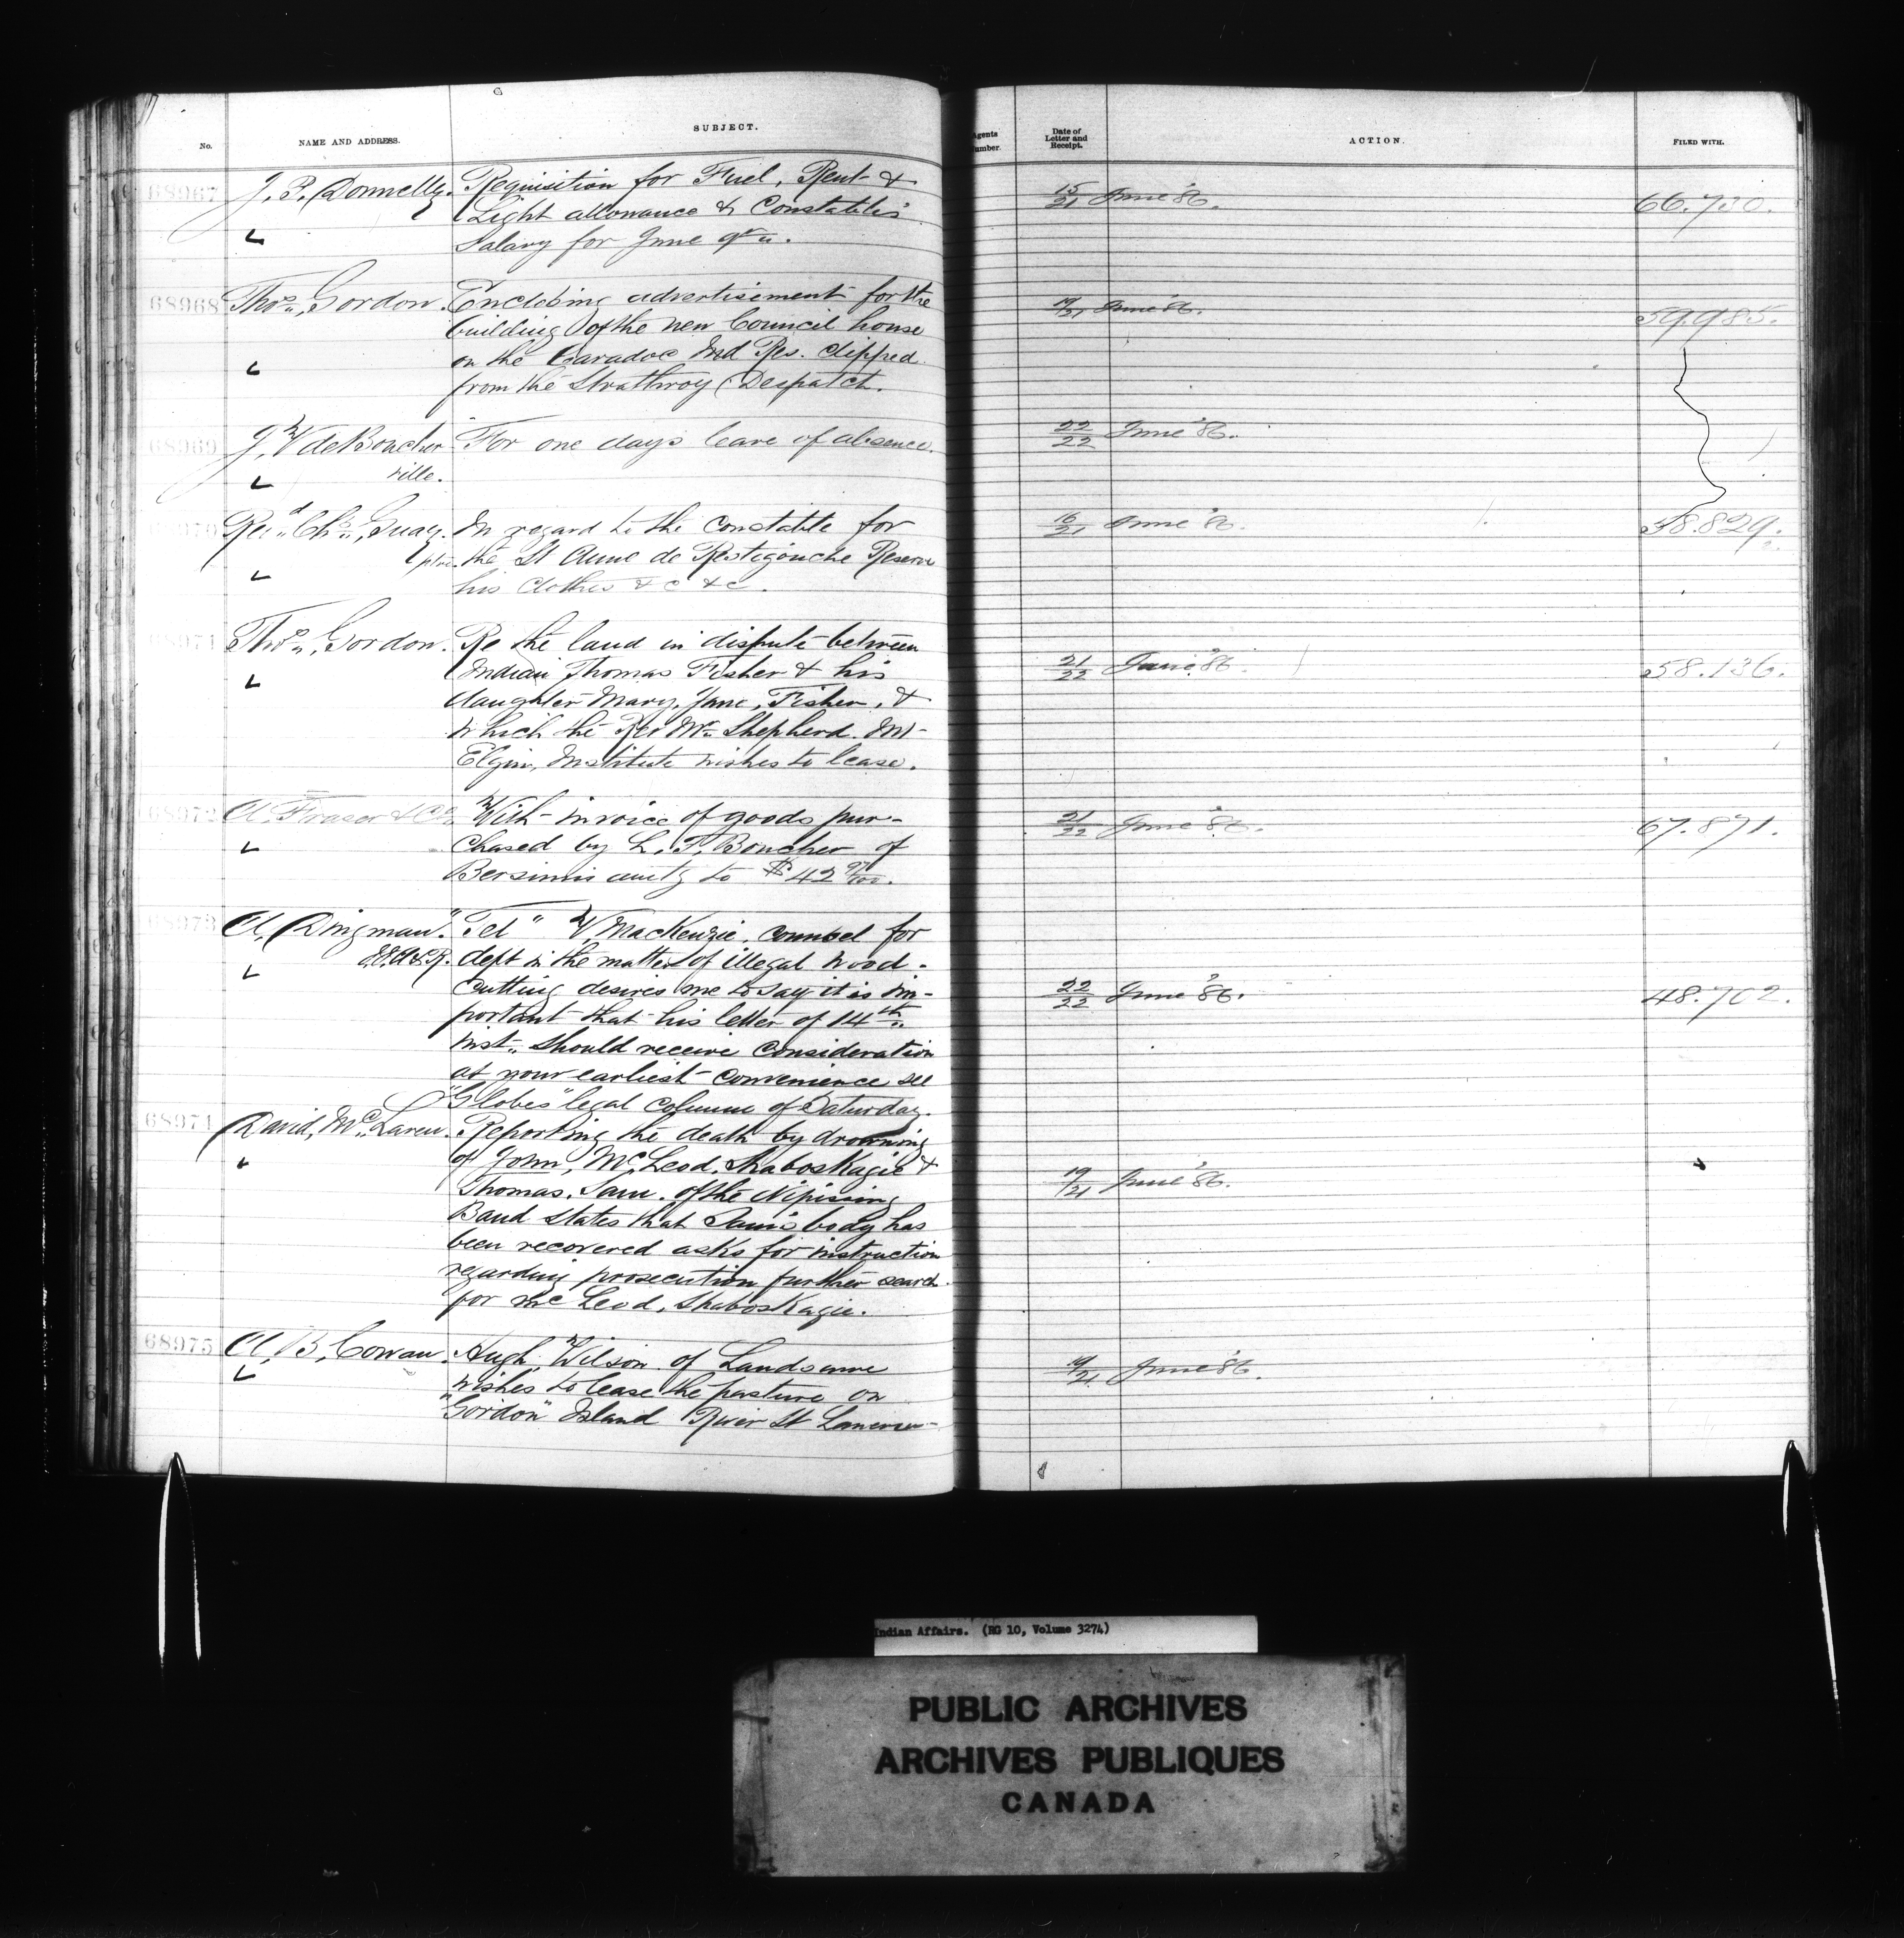 No.
NAME AND ADDRESS.
SUBJECT.
Agents
Number.
Date of
Letter and
Receipt.
ACTION.
FILED WITH.
68967
J. P. Donnelly.
Requisition for Fuel, Rent &
Light allowance & Constable's
Salary for June qr.
15/21 June '86.
66.730.
68968
Thos. Gordon.
Enclosing advertisement for the
building of the new Council house
on the Caradoc Ind Res. clipped
from the Strathroy Despatch.
19/21 June '86.
59.985.
68969
J. W de Boucher
ville.
For one days leave of absence.
22/22 June '86.
Revd. Chs. Guay.
ptre.
In regard to the Constable for
the St Anne de Restigouche Reserve
his clothes &c &c.
16/21 June '86.
58.829.
68971
Thos. Gordon.
Re the land in dispute between
Indian Thomas Fisher & his
daughter Mary, Jane, Fisher, &
which the Rev Mr. Shepherd. Mt
Elgin, Institute wishes to lease.
21/22 June '86.
58.136.
68972
A. Fraser & Co.
With invoice of goods pur-
chased by L. F. Boucher of
Bersimis amtg to $42 97/100.
21/22 June '86.
67.871.
68973
A. Dingman.
"Tel" W, MacKenzie, counsel for
dept in the matter of illegal wood-
cutting desires me to say it is im-
portant that his letter of 14th
inst. should receive consideration
at your earliest convenience see
"Globes" legal column of Saturday.
22/22 June '86.
48.702.
68974
David, McLaren.
Reporting the death by drowning
of John, McLeod, Shaboskagie &
Thomas, Sam. of the Nipissing
Band states that Sam's body has
been recovered asks for instruction
regarding prosecution further search
for McLeod, Shaboskagie.
19/21 June '86.
68975
A. B. Cowan.
Hugh, Wilson of Landsowne
wishes to lease the pasture on
"Gordon" Island River St Lawrence
19/21. June '86.
Indian Affairs. (RG 10, Volume 3274)
PUBLIC ARCHIVES
ARCHIVES PUBLIQUES
CANADA